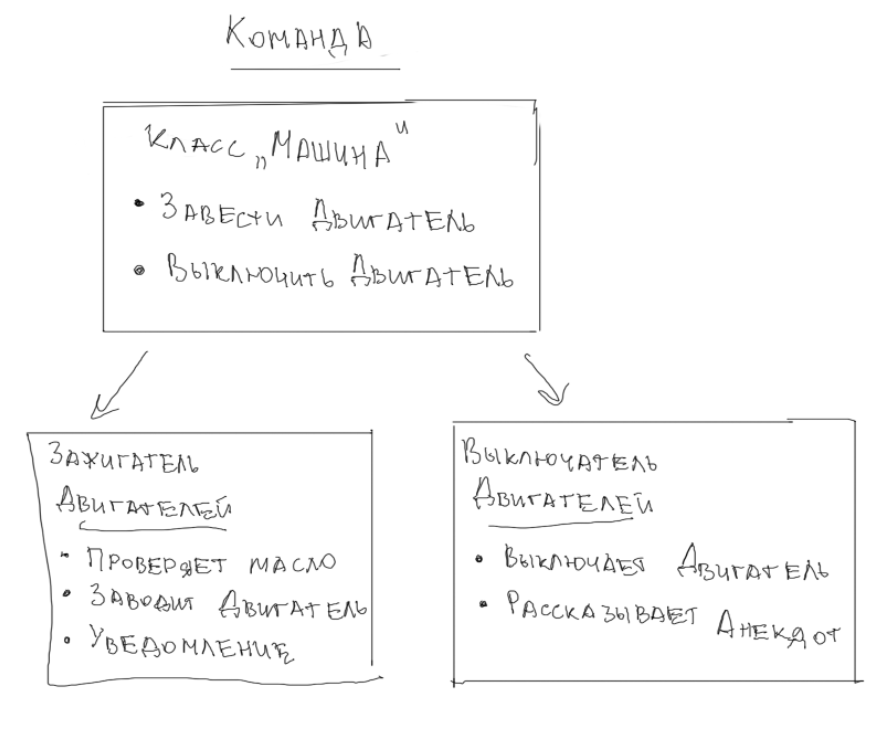 Команда
Класс „Машина"
• Завести Двигатель
• Выключить Двигатель
Зажигатель
Двигателей
• Проверяет масло
• Заводит Двигатель
• Уведомление
Выключатель
Двигателей
• Выключает Двигатель
• Рассказывает Анекдот